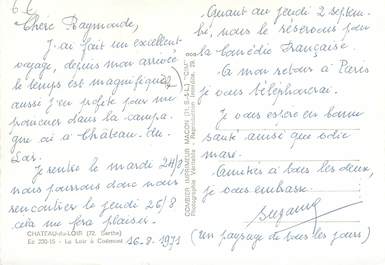 Chère Raymonde,
J'ai fait un excellent
voyage, depuis mon arrivée
le temps est magnifique
aussi j'en profite pour me
promener dans la campa-
gne ou à Château-du-
Loir.
Je rentre le mardi 24/8
nous pourrons donc nous
rencontrer le jeudi 26/8
cela me fera plaisir.
CHATEAU-du-LOIR (72, Sarthe)
Ed 230-15 - Le Loir à Coëmont
16.8.1971
COMBIER IMPRIMEUR MACON (71, S.-&-L.) "CIM"
Photographie Véritable - Reproduction interdite.
Quant au jeudi 2 septem-
bre, nous le réservons pour
la Comédie Française.
A mon retour à Paris
je vous téléphonerai.
Je vous espère en bonne
santé ainsi que votre
mari.
Amitiés à tous les deux,
je vous embrasse.
Suzanne
(un paysage de tous les jours)